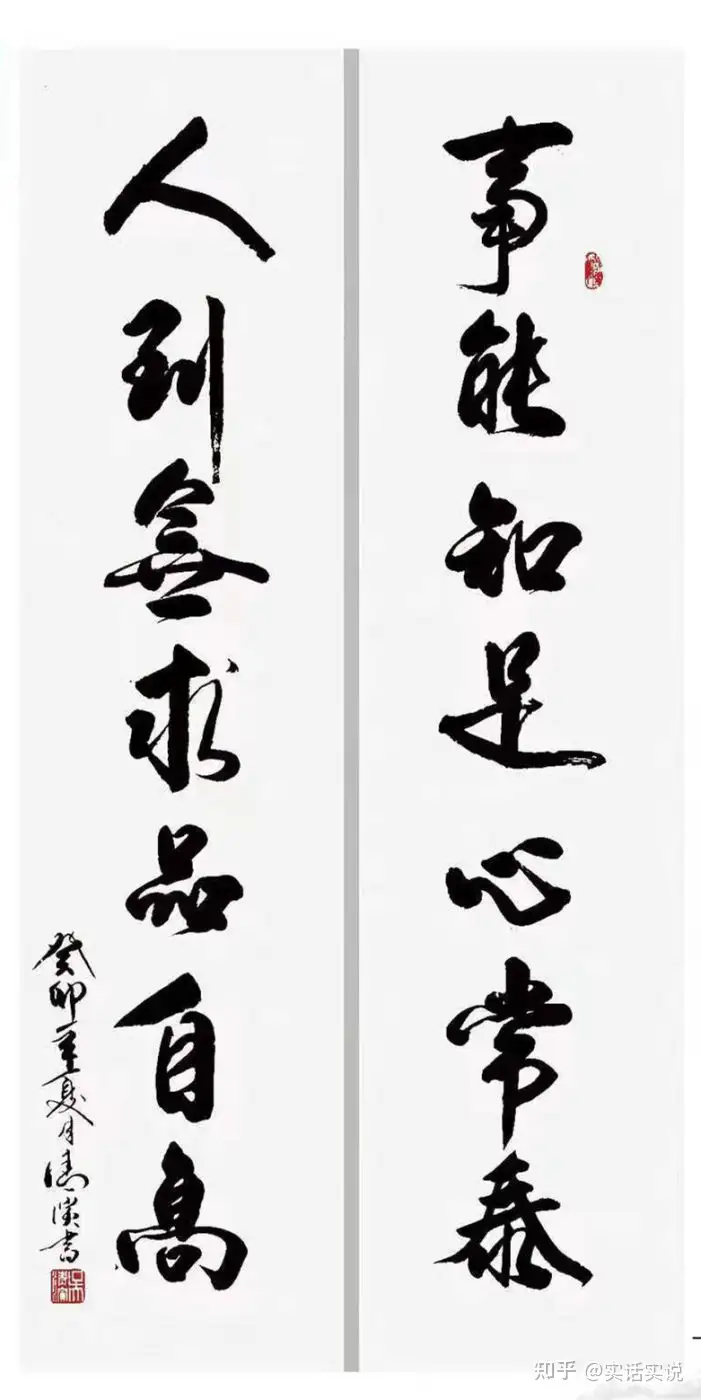 事能知足心常泰
人到無求品自高
癸卯年夏月
書
知乎 @实话实说